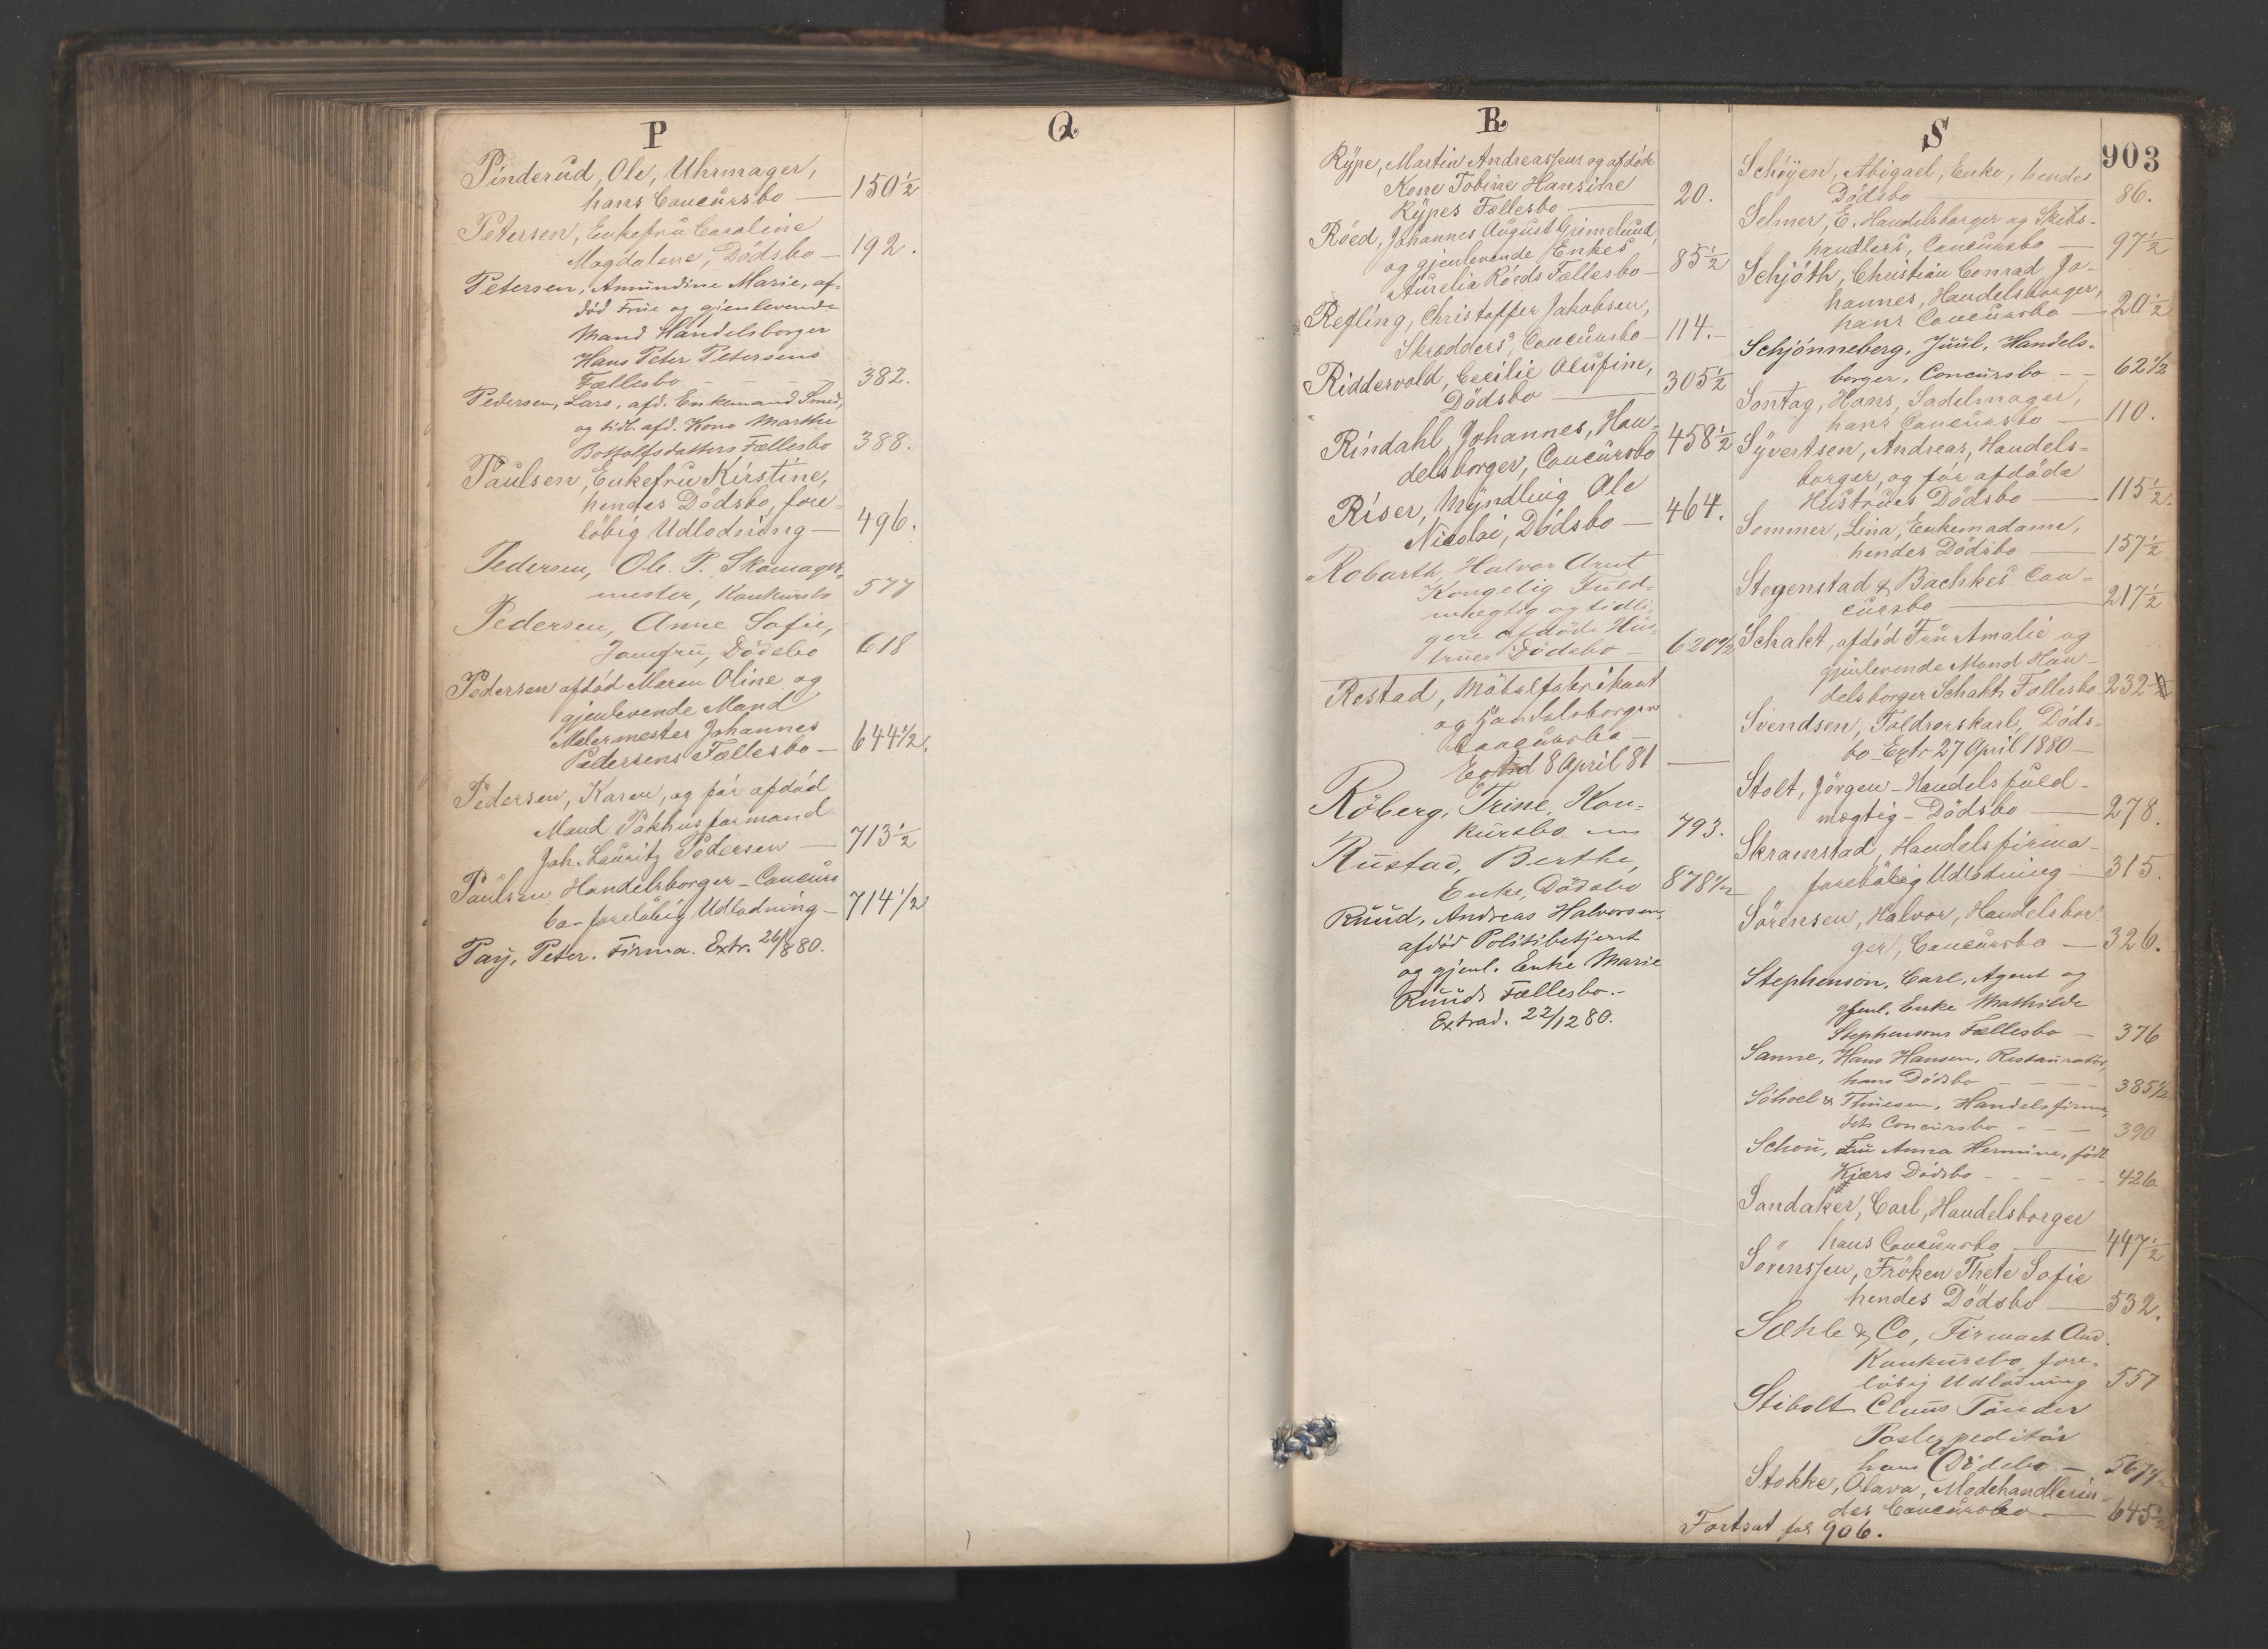 P
Pinderud, Ole, Uhrmager,
hans Concursbo — 150½
Petersen, Enkefru Caroline
Magdalene, Dödsbo — 192.
Petersen, Amundine Marie, af-
död Frue og gjenlevende
Mand Handelsborger
Hans Peter Petersens
Fællesbo - - - - 382.
Pedersen, Lars, afd. Enkemand Smed,
og tidl. afd. Kone Marthe
Botolfsdatters Fællesbo 388.
Paulsen, Enkefru Kirstine,
hendes Dödsbo, fore-
löbig Udlodning — 496.
Pedersen, Ole P. Skomager-
mester, Konkursbo 577
Pedersen, Anne Sofie,
Jomfru, Dödsbo 618
Pedersen afdöd Maren Oline og
gjenlevende Mand
Malermester Johannes
Pedersens Fællesbo — 644½.
Pedersen, Karen, og før afdöd
Mand Pakhusformand
Joh. Lauritz Pedersen — 713½
Paulsen Handelsborger - Concurs
bo - forelöbig Udlodning — 714½
Pay, Peter. Firma. Extr. 26/8 80.
Q
R
Rype, Martin Andreassens og afdöde
Kone Tobine Hansine
Rypes Fællesbo — 20.
Röed, Johannes August Grimelund,
og gjenlevende Enkes
Aurelia Röeds Fællesbo — 85½
Refling, Christoffer Jakobsen,
Skrædders, Concursbo — 114.-
Riddervold, Cecilie Olufine,
Dödsbo — 305½
Rindahl, Johannes, Han-
delsborger, Concursbo 458½
Riser, Myndling Ole
Nicolai, Dödsbo — 464.
Robarth, Halvor Arnt
Kongelig Fuld-
mægtig og tidli-
gere afdöde Hus-
trues Dödsbo — 620½
Restad, Möbelfabrikant
og Handelsborger
Concursbo —
Extrd 8 April 81 —
Röberg, Trine, Kon-
kursbo 793.
Rustad, Berthe,
Enke, Dödsbo 878½
Ruud, Andreas Halvorsen,
afdöd Politibetjent
og gjenl. Enke Marie
Ruuds Fællesbo.-
Extrad. 22/12 80.
S
903
Schöyen, Abigael, Enke, hendes
Dödsbo — 86.
Selmer, E. Handelsborger og Skibs-
handlers, Concursbo — 97½
Schjöth, Christian Conrad Jo-
hannes, Handelsborger,
hans Concursbo — 20½
Schjönneberg, Juul, Handels-
borger, Concursbo - - 62½
Sontag, Hans, Sadelmager,
hans Concursbo — 110.
Syvertsen, Andreas, Handels-
borger, og før afdöde
Hustrues Dödsbo — 115½.
Sommer, Lina, Enkemadame,
hendes Dödsbo — 157½
Stogenstad & Bachkes Con-
cursbo — 217½
Schakt, afdöd Fru Amalie og
gjenlevende Mand Han-
delsborger Schakts Fællesbo 232
Svendsen, Toldrorskarl, Döds-
bo - Extr 27 April 1880 —
Stolt, Jörgen - Handelsfuld-
mægtig - Dödsbo — 278.
Skramstad, Handelsfirma -
forelöbig Udlodning — 315.
Sörensen, Halvor, Handelsbor-
ger, Concursbo — 326.
Stephenson, Carl, Agent og
gjenl. Enke Mathilde
Stephensons Fællesbo — 376
Sanne, Hans Hansen, Restauratör,
hans Dödsbo - - - - 385½
Söhoel & Thuesen, Handelsfirma,
dets Concursbo - - - 390
Schou, Fru Anna Hermine, födt
Kjærs Dödsbo - - - - - 426.
Sandaker, Carl, Handelsborger
hans Concursbo — 447½
Sörenssen, Fröken Thete Sofie
hendes Dödsbo — 532.
Sæhle & Co, Firmaet And.
Konkursbo, fore-
löbig Udlodning 557
Stibolt Claus Tönder
Postexpeditör
hans Dödsbo — 567½
Stokke, Olava, Modehandlerin-
des Concursbo — 645½
Fortsat fol 906.